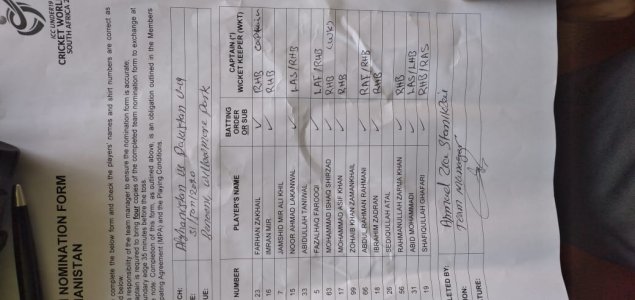 ICC UNDER19
CRICKET WORL
SOUTH AFRICA 2
NOMINATION FORM
HANISTAN
complete the below form and check the players' names and shirt numbers are correct as
d below.
responsibility of the team manager to ensure the nomination form is accurate.
aptain is required to bring four copies of the completed team nomination form to exchange at
undary edge 35 minutes before the toss
note: Completion of this form, as outlined above, is an obligation outlined in the Members
ipating Agreement (MPA) and the Playing Conditions.
CH: Afghanistan vs Pakistan U-19
31/Jan/2020
UE: Benoni, Willowmoore Park
NUMBER PLAYER'S NAME BATTING ORDER OR SUB CAPTAIN (*) WICKET KEEPER (WKT)
23 FARHAN ZAKHAIL ✓ RHB captain
16 IMRAN MIR ✓ RHB
7 JAMSHID MIR ALI KHIL
15 NOOR AHMAD LAKANWAL ✓ LAS/RHB
33 ABIDULLAH TANIWAL
5 FAZALHAQ FAROOQI ✓ LAF/RHB
63 MOHAMMAD ISHAQ SHIRZAD ✓ RHB (WK)
17 MOHAMMAD ASIF KHAN ✓ RHB
99 ZOHAIB KHAN ZAMANKHAIL
66 ABDUL RAHMAN RAHMANI ✓ RAF/RHB
18 IBRAHIM ZADRAN ✓ RHB
26 SEDIQULLAH ATAL
56 RAHMANULLAH ZARMA KHAN ✓ RHB
31 ABID MOHAMMADI ✓ LAS/LHB
19 SHAFIQULLAH GHAFARI ✓ RHB/RAS
LETED BY: Ahmad Zia
TION: Team Manager
TURE: